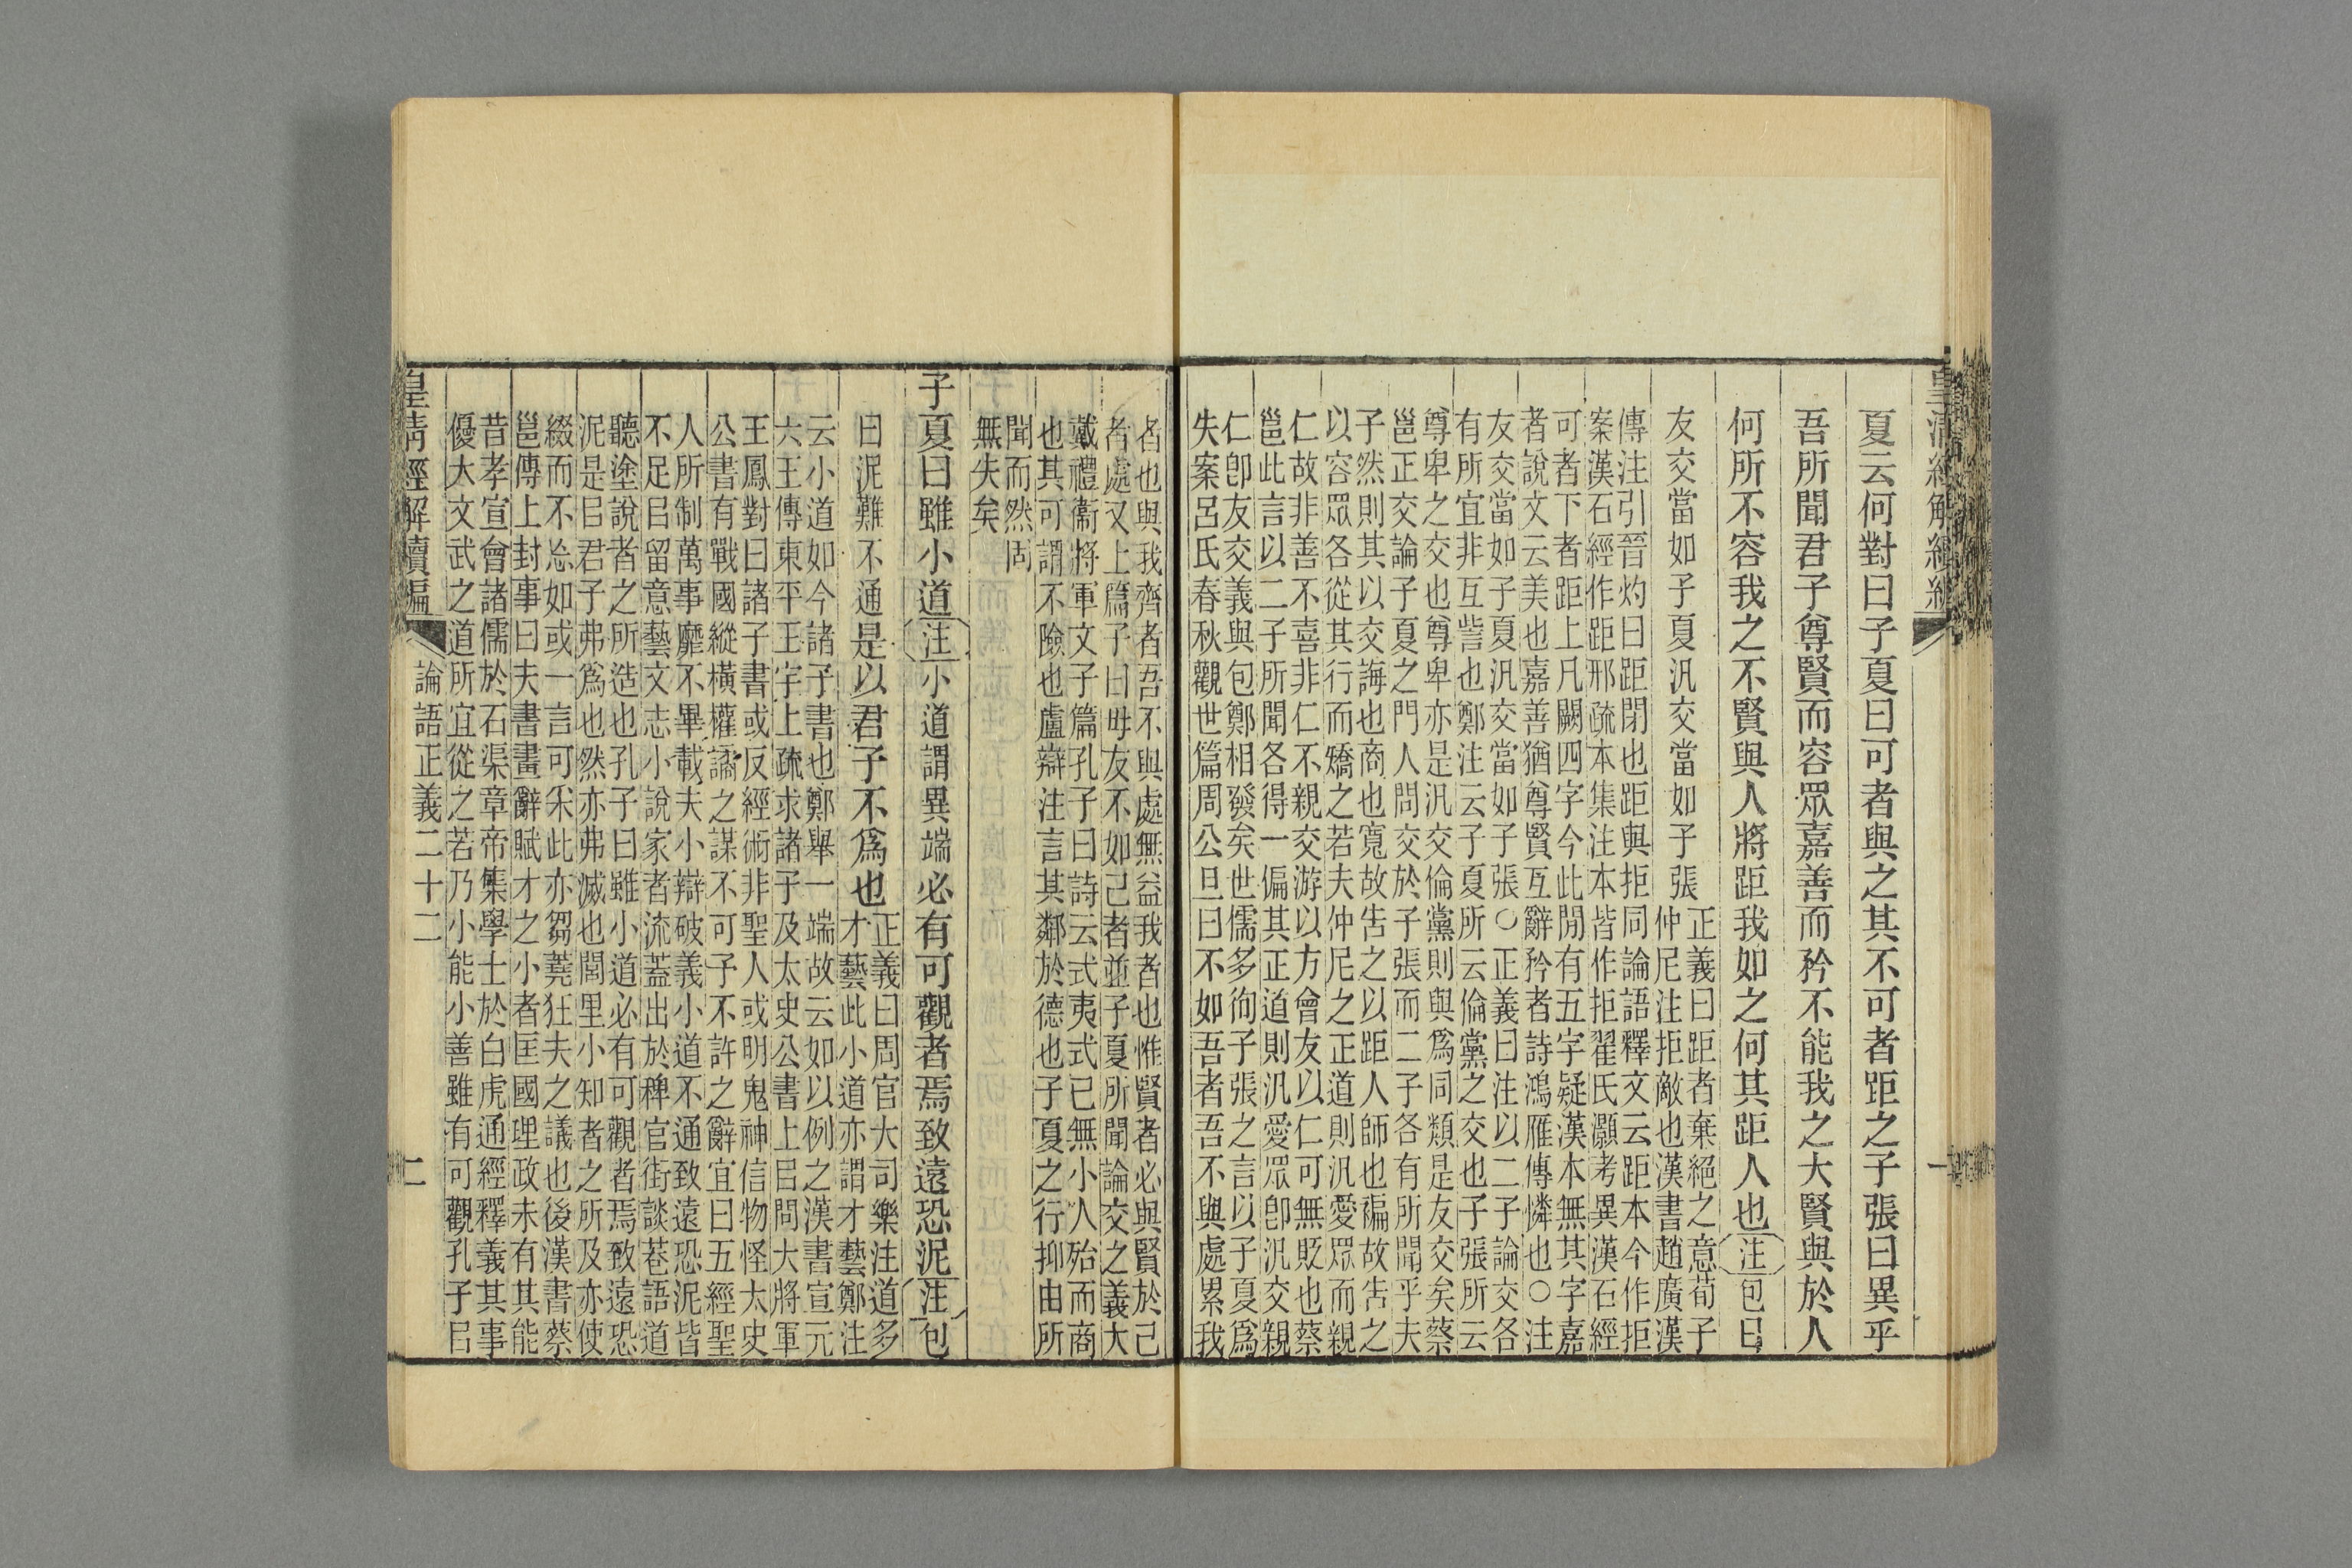 皇清經解續編
一
夏云何對曰子夏曰可者與之其不可者距之子張曰異乎
吾所聞君子尊賢而容眾嘉善而矜不能我之大賢與於人
何所不容我之不賢與人將距我如之何其距人也注包曰
友交當如子夏汎交當如子張
正義曰距者棄絕之意荀子
仲尼注拒敵也漢書趙廣漢
傳注引晉灼曰距閉也距與拒同論語釋文云距本今作拒
案漢石經作距邢疏本集注本皆作拒翟氏灝考異漢石經
可者下者距上凡闕四字今此閒有五字疑漢本無其字嘉
者說文云美也嘉善猶尊賢互辭矜者詩鴻雁傳憐也○注
友交當如子夏汎交當如子張○正義曰注以二子論交各
有所宜非互訾也鄭注云子夏所云倫黨之交也子張所云
尊卑之交也尊卑亦是汎交倫黨則與爲同類是友交矣蔡
邕正交論子夏之門人問交於子張而二子各有所聞乎夫
子然則其以交誨也商也寬故告之以距人師也褊故告之
以容眾各從其行而矯之若夫仲尼之正道則汎愛眾而親
仁故非善不喜非仁不親交游以方會友以仁可無貶也蔡
邕此言以二子所聞各得一偏其正道則汎愛眾卽汎交親
仁卽友交義與包鄭相發矣世儒多徇子張之言以子夏爲
失案呂氏春秋觀世篇周公旦曰不如吾者吾不與處累我
者也與我齊者吾不與處無益我者也惟賢者必與賢於己
者處又上篇子曰毋友不如己者並子夏所聞論交之義大
戴禮衞將軍文子篇孔子曰詩云式夷式已無小人殆而商
也其可謂不險也盧辯注言其鄰於德也子夏之行抑由所
聞而然固
無失矣
子夏曰雖小道注小道謂異端必有可觀者焉致遠恐泥注包
曰泥難不通是以君子不爲也
正義曰周官大司樂注道多
才藝此小道亦謂才藝鄭注
云小道如今諸子書也鄭舉一端故云如以例之漢書宣元
六王傳東平王宇上疏求諸子及太史公書上㠯問大將軍
王鳳對曰諸子書或反經術非聖人或明鬼神信物怪太史
公書有戰國縱橫權譎之謀不可予不許之辭宜曰五經聖
人所制萬事靡不畢載夫小辯破義小道不通致遠恐泥皆
不足㠯留意藝文志小說家者流蓋出於稗官街談巷語道
聽塗說者之所造也孔子曰雖小道必有可觀者焉致遠恐
泥是㠯君子弗爲也然亦弗滅也閭里小知者之所及亦使
綴而不忘如或一言可采此亦芻蕘狂夫之議也後漢書蔡
邕傳上封事曰夫書畫辭賦才之小者匡國理政未有其能
昔孝宣會諸儒於石渠章帝集學士於白虎通經釋義其事
優大文武之道所宜從之若乃小能小善雖有可觀孔子㠯
皇清經解續編
論語正義二十二
二